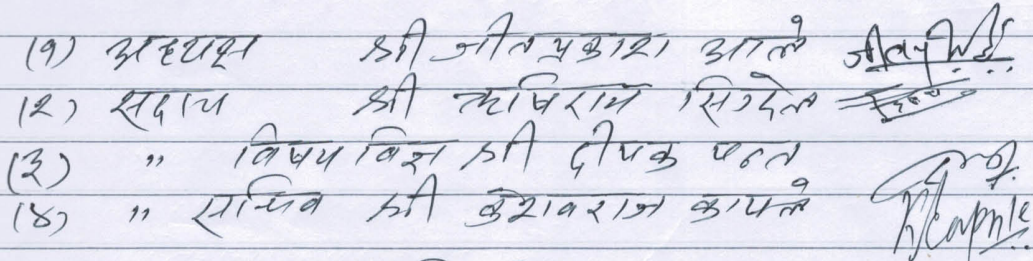 (१) अध्यक्ष श्री जीतप्रकाश आले
(२) सदस्य श्री ऋषिराम सिग्देल
(३) " विषय विज्ञ श्री दीपक पन्त
(४) " सचिव श्री केशवराज काफ्ले